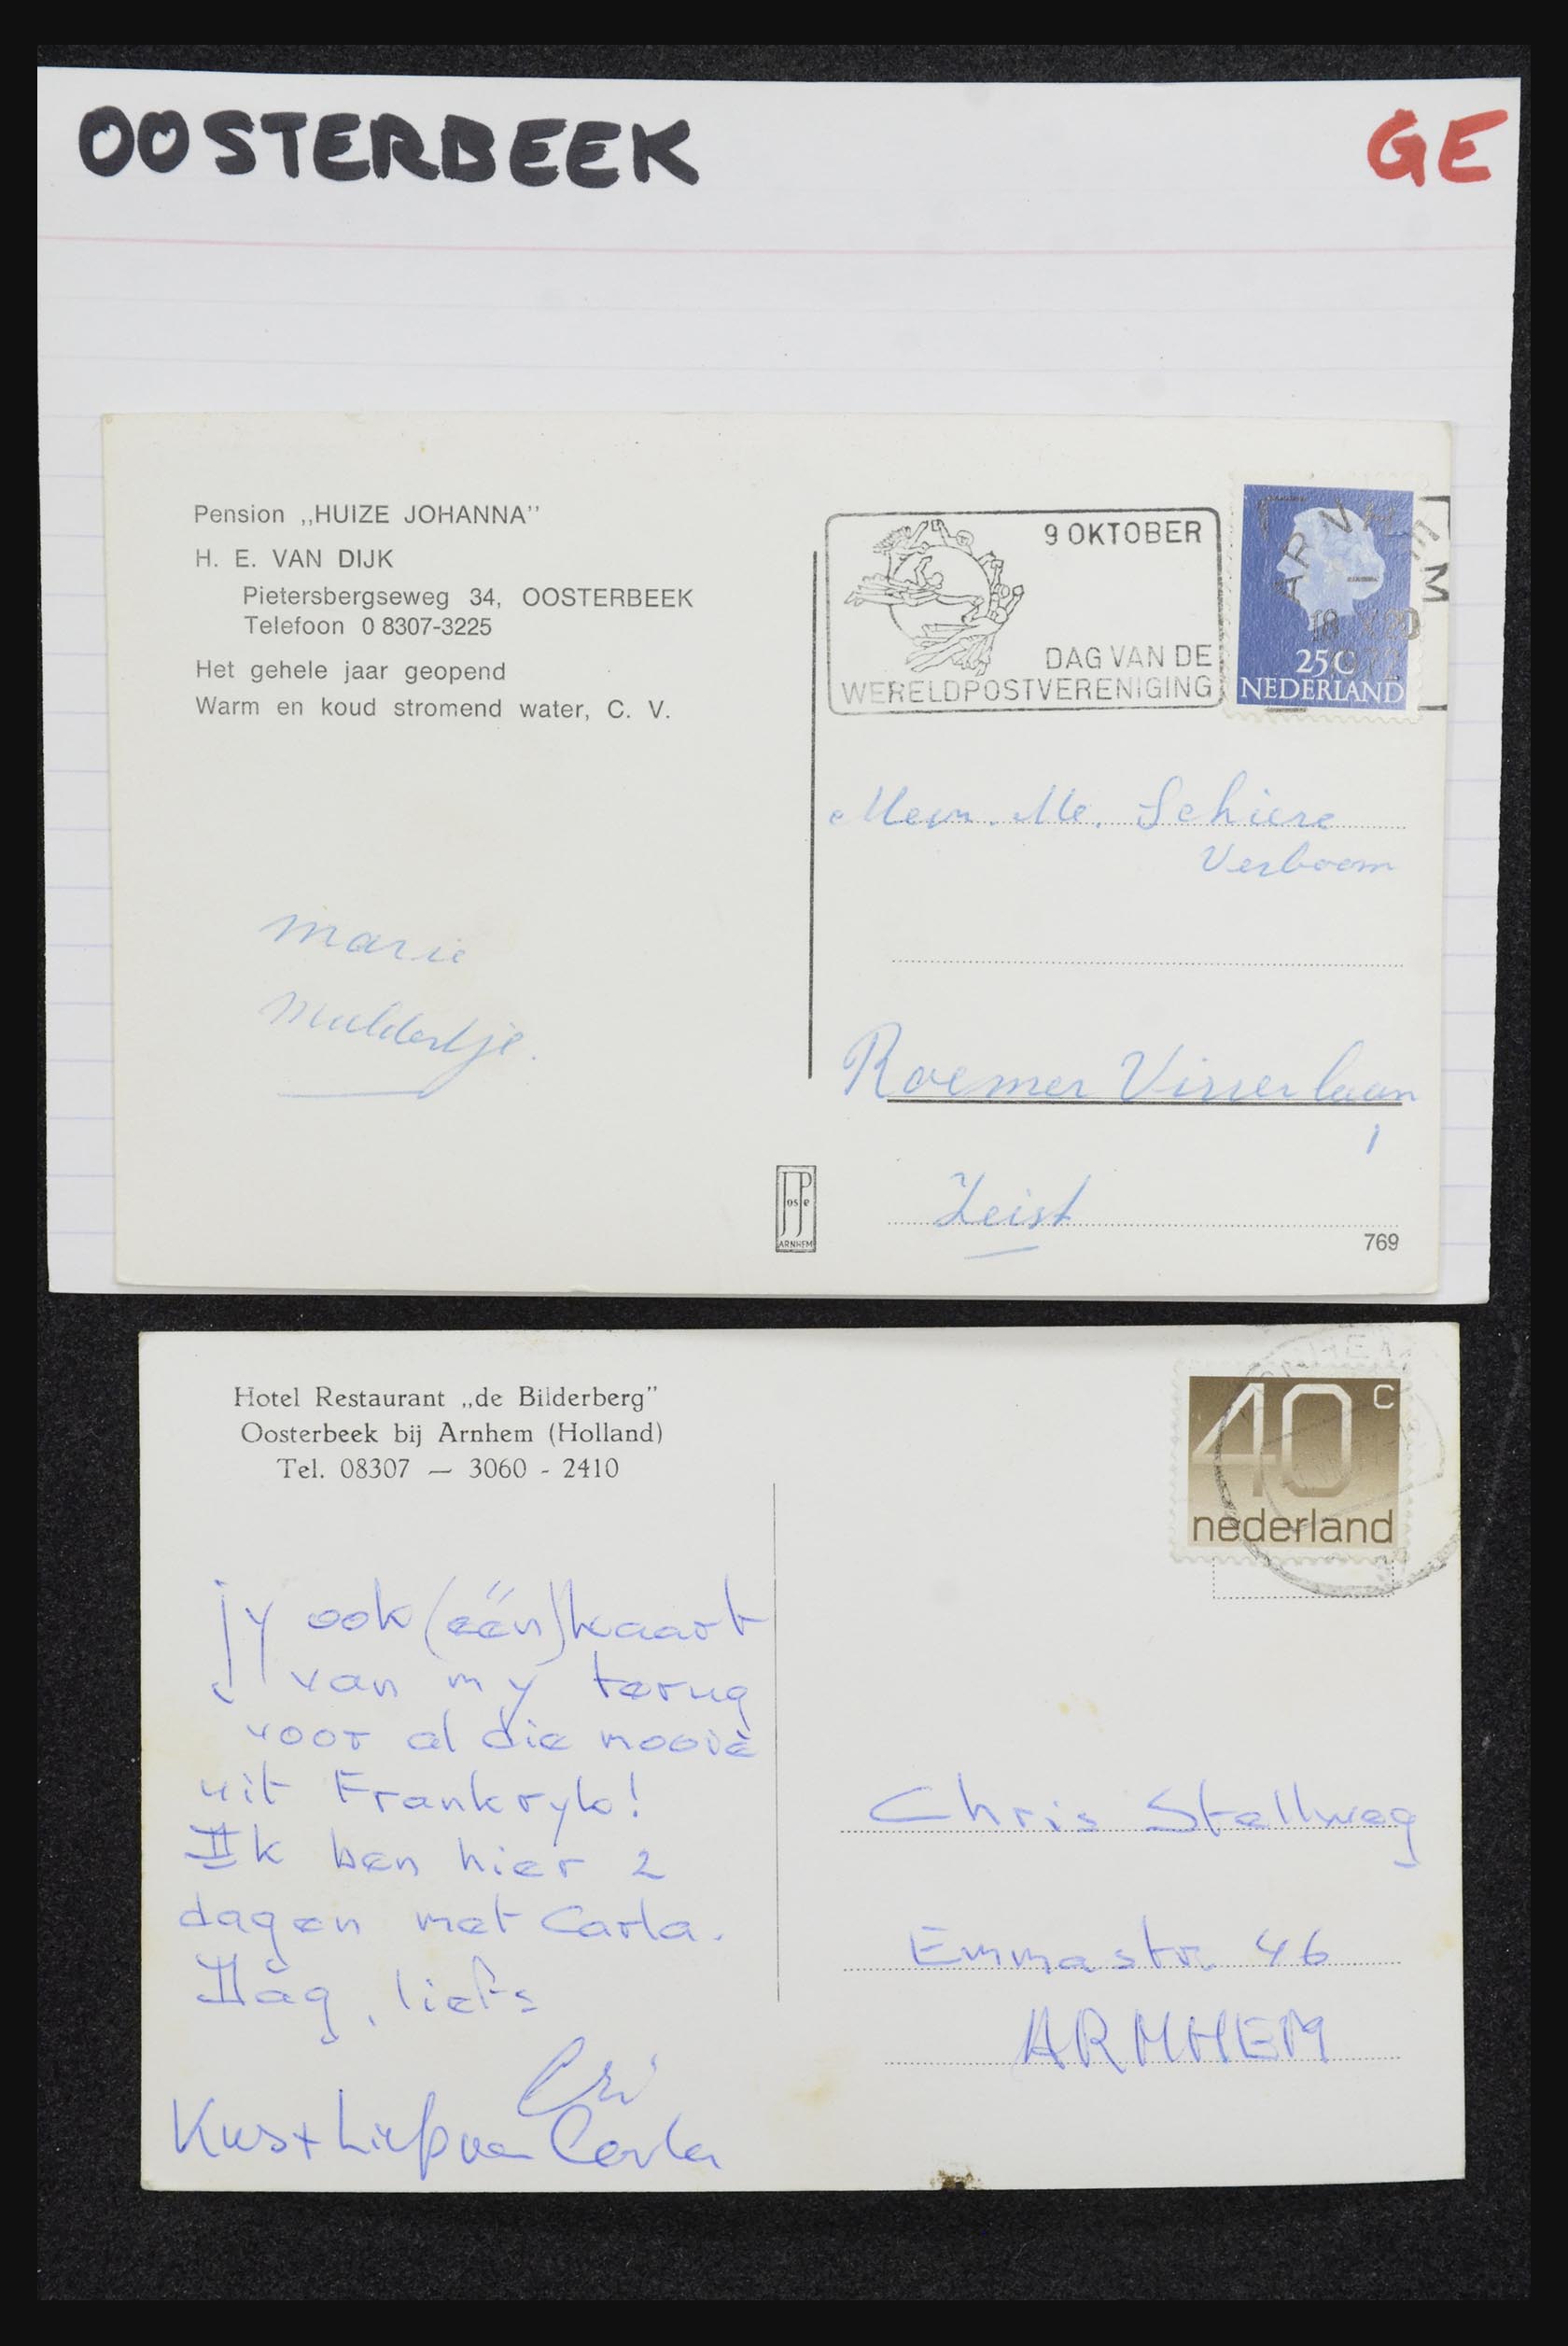 OOSTERBEEK
GE
Pension „HUIZE JOHANNA”
H. E. VAN DIJK
Pietersbergseweg 34, OOSTERBEEK
Telefoon 0 8307-3225
Het gehele jaar geopend
Warm en koud stromend water, C. V.
9 OKTOBER
DAG VAN DE
WERELDPOSTVERENIGING
ARNHEM
1972
25C
NEDERLAND
Schiere
Verboom
Marie
Muldertje.
Roemer Visserlaan
1
Zeist
JosPe
ARNHEM
769
Hotel Restaurant „de Bilderberg”
Oosterbeek bij Arnhem (Holland)
Tel. 08307 — 3060 - 2410
40 c
nederland
jy ook (één) kaart
van my terug
voor al die mooie
uit Frankryk!
Ik ben hier 2
dagen met Carla.
Dag, liefs
Kus + Liefs van Carla
Chris Stellweg
Emmastr. 46
ARNHEM